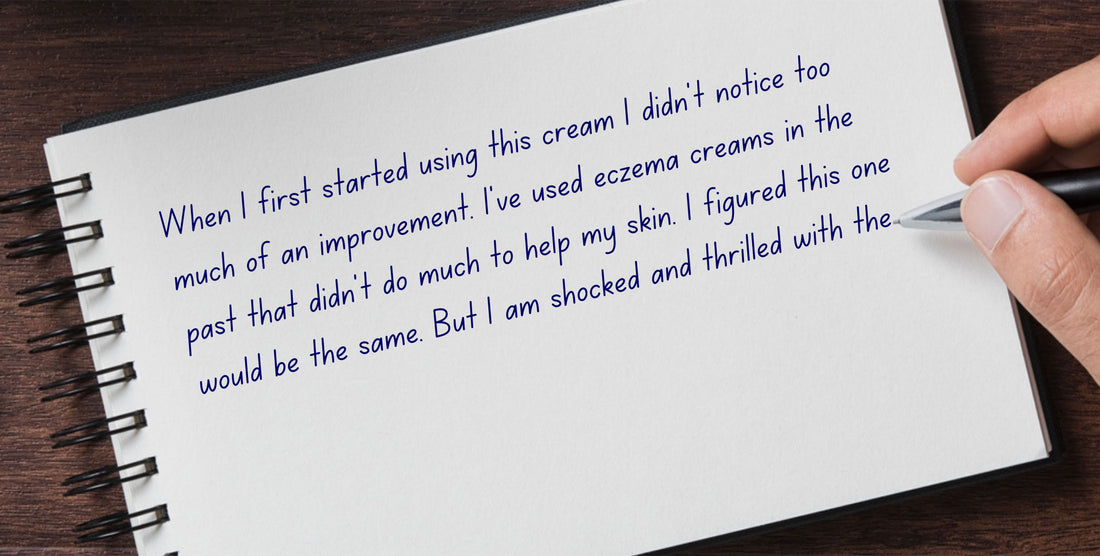 When I first started using this cream I didn't notice too
much of an improvement. I've used eczema creams in the
past that didn't do much to help my skin. I figured this one
would be the same. But I am shocked and thrilled with the